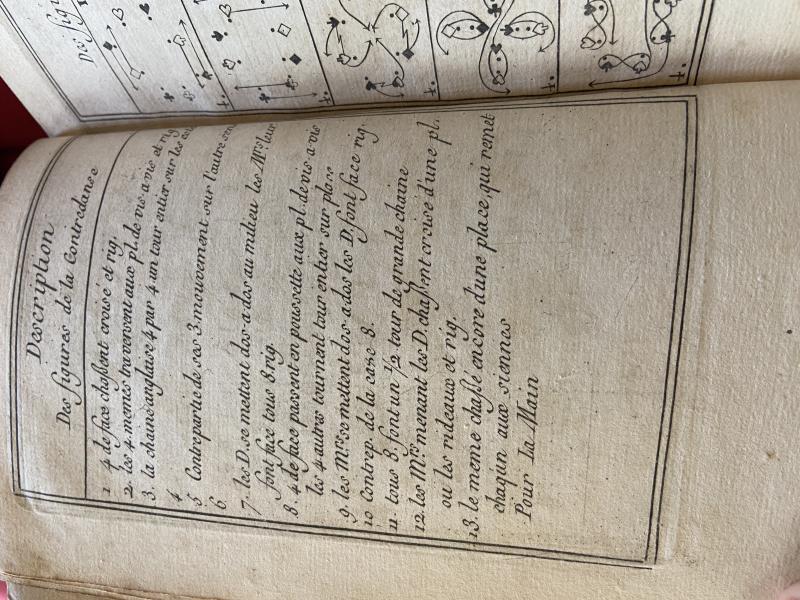 Description
Des figures de la Contredanse
1 4 de face chassent croisé et rig.
2. les 4 memes traversent aux pl. de vis-a-vis et rig
3. la chaine anglaise 4 par 4 un tour entier sur les
4
5 Contrepartie de ses 3. mouvement sur l'autre
6.
7. les D. se mettent dos-a-dos au milieu les Mrs. leur
font face tous 8 rig.
8. 4 de face passent en poussette aux pl. de vis-a-vis
les 4 autres tournent tour entier sur place
9. les Mrs se mettent dos-a dos les D. font face rig.
10 Contrep. de la case 8.
11. tous 8. font un 1/2 tour de grande chaine
12. les Mrs. menant les D. chassent croisé d'une pl.
ou les rideaux et rig.
13. le meme chassé encore d'une place, qui remet
chaqun aux siennes
Pour La Main
Des figu